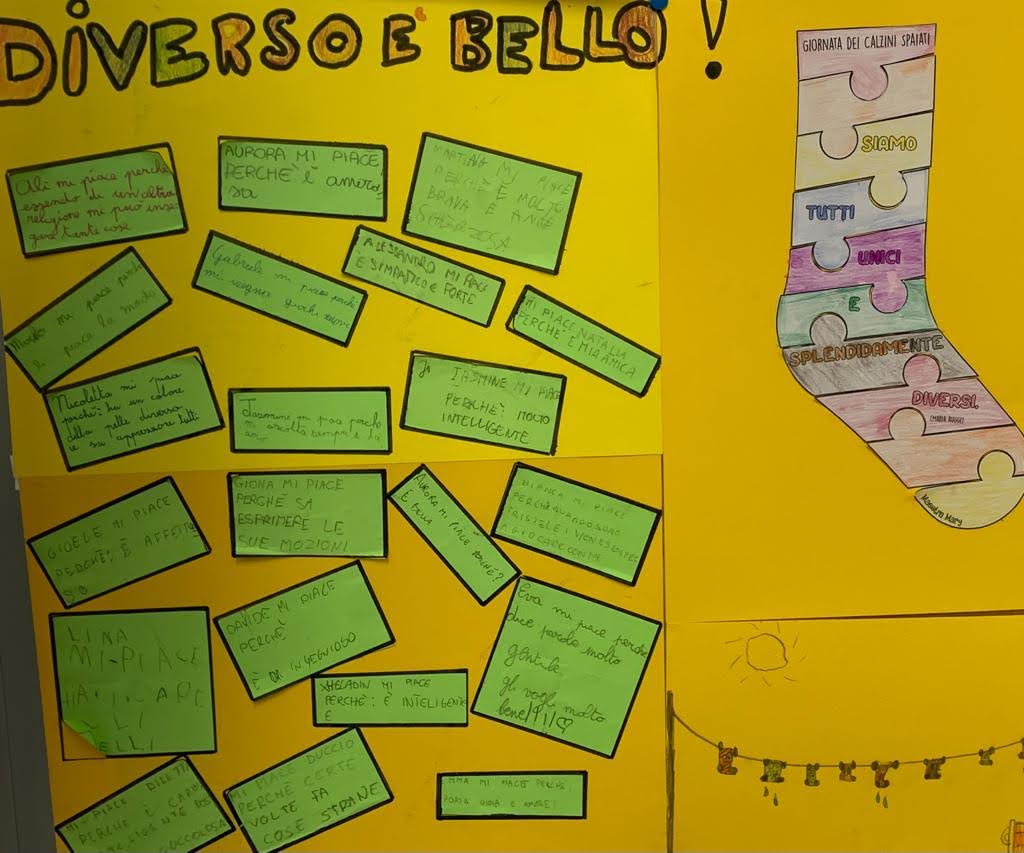 DIVERSO È BELLO!
Alì mi piace perché
essendo di un'altra
religione mi può inse
gare tante cose
AURORA MI PIACE
PERCHÈ È AMORO
SA
MARTINA MI PIACE
PERCHÈ È MOLTO
BRAVA E ANCHE
ALESSANDRO MI PIACE
È SIMPATICO E FORTE
Gabriele mi piace perché
mi insegna giochi nuovi
mi piace perché
le piace la moda
MI PIACE NATALIA
PERCHÈ È MIA AMICA
Nicoletta mi piace
perché: ha un colore
della pelle diverso
e sa apprezzare tutti
Jasmine mi piace perché
mi ascolta sempre
JASMINE MI PIACE
PERCHÈ: MOLTO
INTELLIGENTE
GIOELE MI PIACE
PERCHÈ: È AFFETTUO
SO
GIONA MI PIACE
PERCHÈ SA
ESPRIMERE LE
SUE MOZIONI
AURORA MI PIACE PERCHÈ?
È BELLA
BIANCA MI PIACE
PERCHÈ QUANDO SONO
TRISTE LEI VIENE SEMPRE
A GIOCARE CON ME
LINA
MI-PIACE
HA I CAPE
LLI
BELLI
DAVIDE MI PIACE
PERCHÈ
È
XHELADIN MI PIACE
PERCHÈ: È INTELIGENTE
E
Eva mi piace perché
dice parole molto
gentile,
gli voglio molto
bene!!!!♡
MI-PIACE
PERCHÈ È CARINA
COCCOLOSA
MI PIACE DUCCIO
PERCHÈ CERTE
VOLTE FA
COSE STRANE
MI PIACE PERCHÈ
PORTA GIOIA E AMORE!
GIORNATA DEI CALZINI SPAIATI
SIAMO
TUTTI
UNICI
E
SPLENDIDAMENTE
DIVERSI.
Maestra Mary